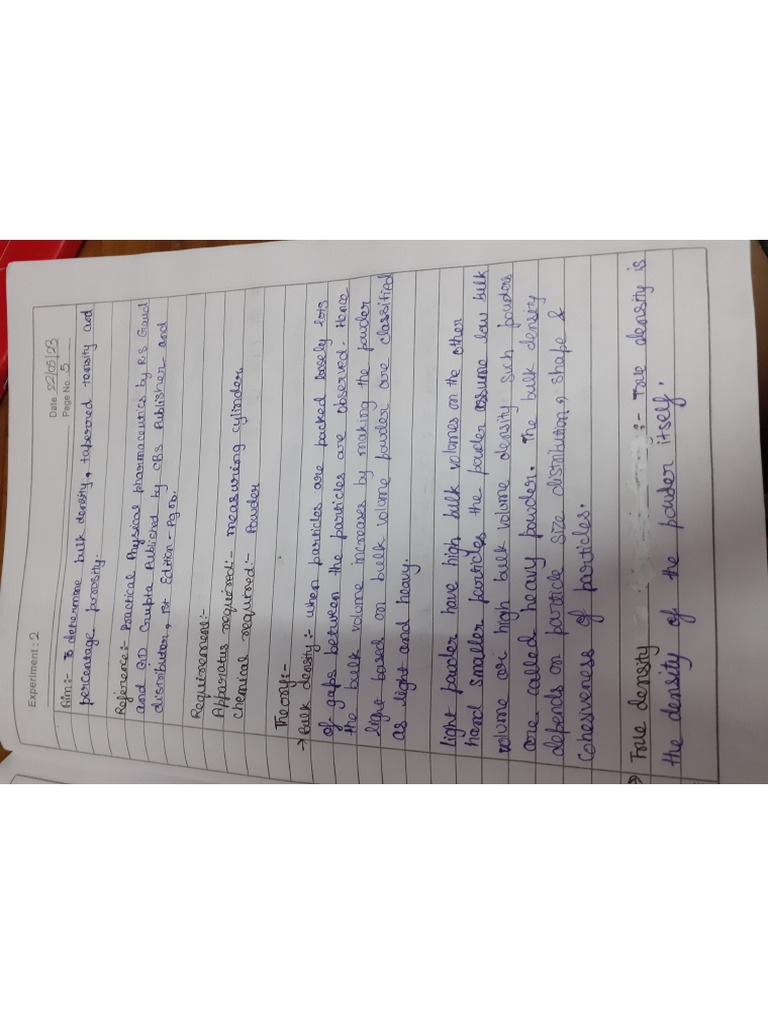 Experiment : 2
Date 22/05/23
Page No. 5
Aim:- To determine bulk density, tapered density and
percentage porosity.
Reference:- Practical Physical pharmaceutics by RS Gaud
and GD Gupta Published by CBS Publisher and
distributor, 1st Edition - Pg no.
Requirement:-
Apparatus required:- measuring cylinder
Chemical required:- Powder
Theory:-
→ Bulk density:- when particles are packed loosely lots
of gaps between the particles are observed. Hence
the bulk volume increases by making the powder
light based on bulk volume powder are classified
as light and heavy.
light powder have high bulk volumes on the other
hand smaller particles the powder assume low bulk
volume or high bulk volume density such powders
are called heavy powder. The bulk density
depends on particle size distribution, shape &
Cohesiveness of particles.
→ True density :- True density is
the density of the powder itself.